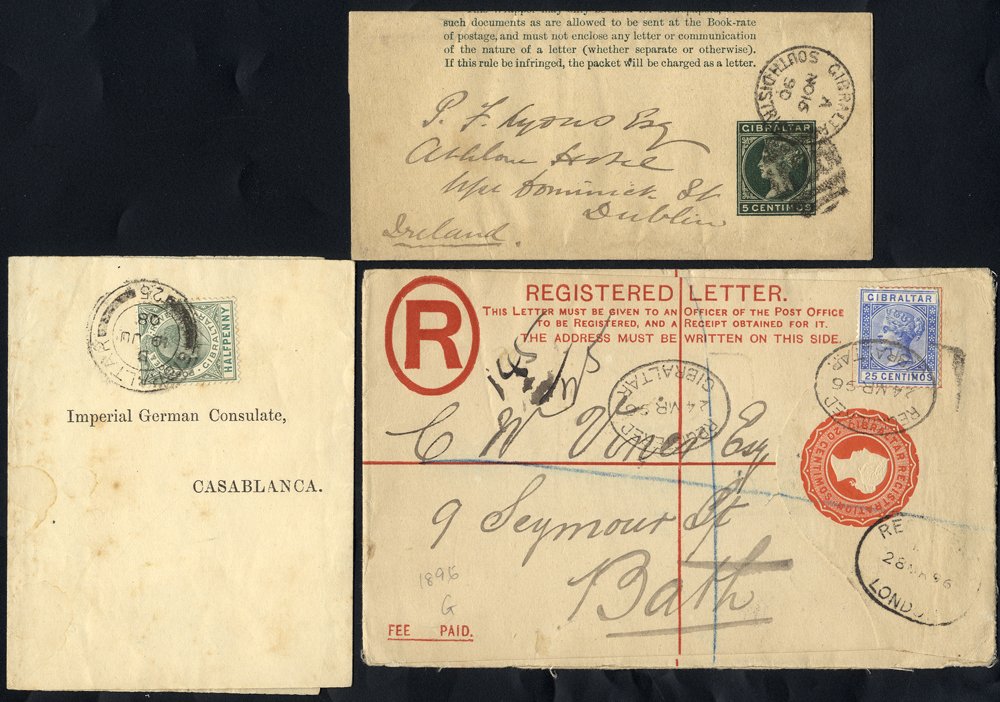 such documents as are allowed to be sent at the Book-rate
of postage, and must not enclose any letter or communication
of the nature of a letter (whether separate or otherwise).
If this rule be infringed, the packet will be charged as a letter.
GIBRALTAR
SOUTH DIST
A
NO 16
90
GIBRALTAR
5 CENTIMOS
P. F. Lyons Esq
Hotel
Dominick St
Dublin
Ireland.
GIBRALTAR
HALFPENNY
08
25
Imperial German Consulate,
CASABLANCA.
R
REGISTERED LETTER.
THIS LETTER MUST BE GIVEN TO AN OFFICER OF THE POST OFFICE
TO BE REGISTERED, AND A RECEIPT OBTAINED FOR IT.
THE ADDRESS MUST BE WRITTEN ON THIS SIDE.
GIBRALTAR
25 CENTIMOS
REGISTERED
24 MR 96
GIBRALTAR
REGISTERED
24 MR 96
GIBRALTAR
C W Viner Esq
GIBRALTAR REGISTRATION
20 CENTIMOS
9 Seymour St
Bath
RE
28 MR 96
LONDO
1896
G
FEE PAID.